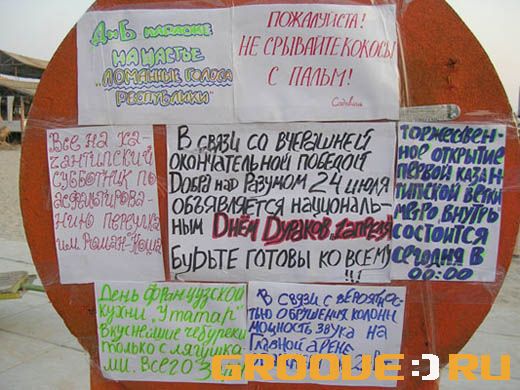 ДнБ караоке
НА ЩАСТЬЕ
"ЛОМАННЫЕ ГОЛОСА
РЕСПУБЛИКИ"
ПОЖАЛУЙСТА!
НЕ СРЫВАЙТЕ КОКОСЫ
С ПАЛЬМ!
Все на ка-
зантипский
субботник по
асфальтирова-
нию переулка
им. Роман
В СВЯЗИ СО ВЧЕРАШНЕЙ
ОКОНЧАТЕЛЬНОЙ ПОБЕДОЙ
ДОБРА НАД РАЗУМОМ 24 ИЮЛЯ
ОБЪЯВЛЯЕТСЯ НАЦИОНАЛЬ-
НЫМ ДНЁМ ДУРАКОВ
БУДЬТЕ ГОТОВЫ КО ВСЕМУ
!!!
ТОРЖЕСТВЕН-
НОЕ ОТКРЫТИЕ
ПЕРВОЙ КАЗАН
ТИПСКОЙ ВЕТКИ
МЕТРО
СОСТОИТСЯ
СЕГОДНЯ В
00:00
День французской
кухни "У татар"
Вкуснейшие чебуреки
только с лягушка-
ми. Всего
В СВЯЗИ С ВЕРОЯТНОС-
ТЬЮ ОБРУШЕНИЯ КОЛОНН
МОЩНОСТЬ ЗВУКА НА
ГЛАВНОЙ АРЕНЕ
GROOVE:)RU